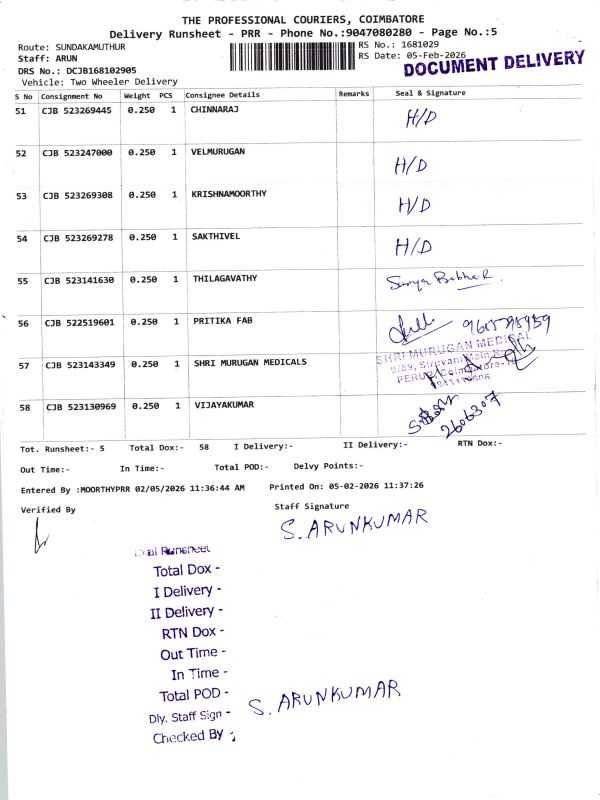 THE PROFESSIONAL COURIERS, COIMBATORE
Delivery Runsheet - PRR - Phone No.:9047080280 - Page No.:5
Route: SUNDAKAMUTHUR
RS No.: 1681029
Staff: ARUN
RS Date: 05-Feb-2026
DOCUMENT DELIVERY
DRS No.: DCJB168102905
Vehicle: Two Wheeler Delivery
S No Consignment No Weight PCS Consignee Details Remarks Seal & Signature
51 CJB 523269445 0.250 1 CHINNARAJ H/D
52 CJB 523247000 0.250 1 VELMURUGAN H/D
53 CJB 523269308 0.250 1 KRISHNAMOORTHY H/D
54 CJB 523269278 0.250 1 SAKTHIVEL H/D
55 CJB 523141630 0.250 1 THILAGAVATHY
56 CJB 522519601 0.250 1 PRITIKA FAB
57 CJB 523143349 0.250 1 SHRI MURUGAN MEDICALS SHRI MURUGAN MEDICAL
58 CJB 523130969 0.250 1 VIJAYAKUMAR 2606307
Tot. Runsheet:- 5 Total Dox:- 58 I Delivery:- II Delivery:- RTN Dox:-
Out Time:- In Time:- Total POD:- Delvy Points:-
Entered By :MOORTHYPRR 02/05/2026 11:36:44 AM Printed On: 05-02-2026 11:37:26
Verified By Staff Signature
S. ARUNKUMAR
Runsheet
Total Dox -
I Delivery -
II Delivery -
RTN Dox -
Out Time -
In Time -
Total POD -
Dly. Staff Sign - S. ARUNKUMAR
Checked By -